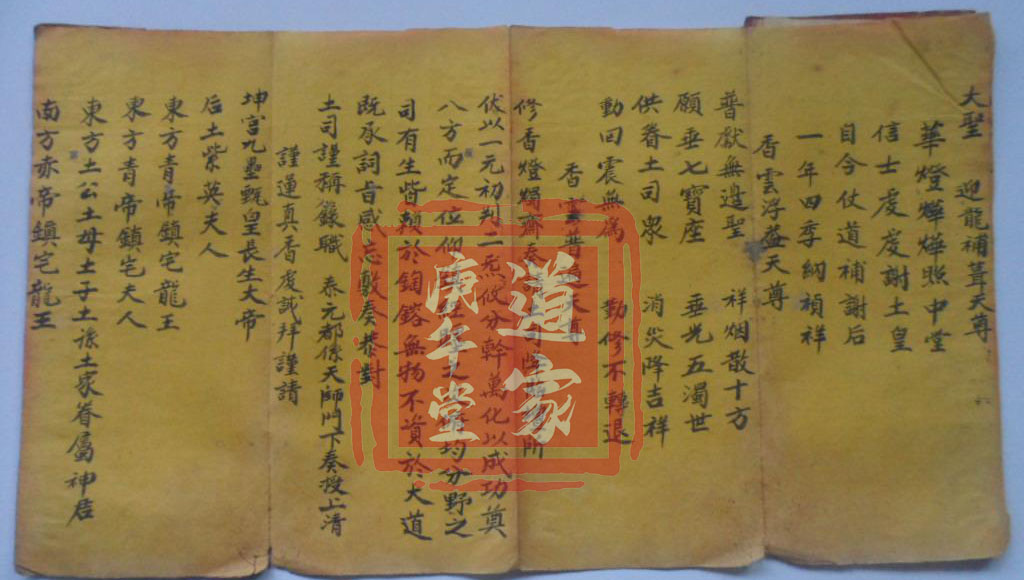 大聖　迎龍補葺天尊
華燈燁燁照中堂
信士虔虔謝土皇
自今仗道補謝后
一年四季納禎祥
香雲浮蓋天尊
普獻無邊聖　祥烟散十方
願垂七寶座　垂光五濁世
供養土司眾　消災降吉祥
動回震無為　動修不轉退
香雲普　天尊
修香燈燭齋奏　所
伏以一元初判二炁攸分幹萬化以成功奠
八方而定位仰　之　均分野之
司有生皆賴於鈞鎔無物不資於大道
既承詞旨感忘敷奏恭對
土司謹稱籙職　泰元都係天師門下奏授上清
謹運真香虔誠拜謹請
坤宮九壘甄皇長生大帝
后土紫英夫人
東方青帝鎮宅龍王
東方青帝鎮宅夫人
東方土公土母土子土孫土家眷屬神居
南方赤帝鎮宅龍王
道家
庚年堂